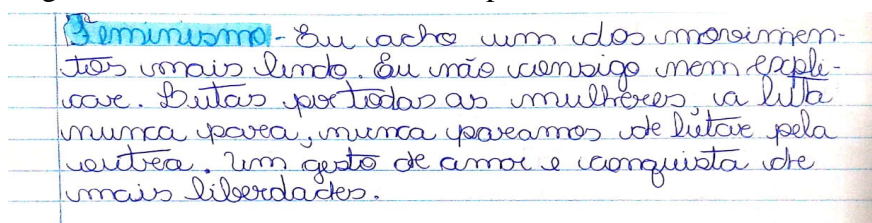 Feminismo - Eu acho um dos movimen-
tos mais lindo. Eu não consigo nem expli-
car. Lutas por todas as mulheres, a luta
nunca para, nunca paramos de lutar pela
outra. Um gesto de amor e conquista de
mais liberdades.